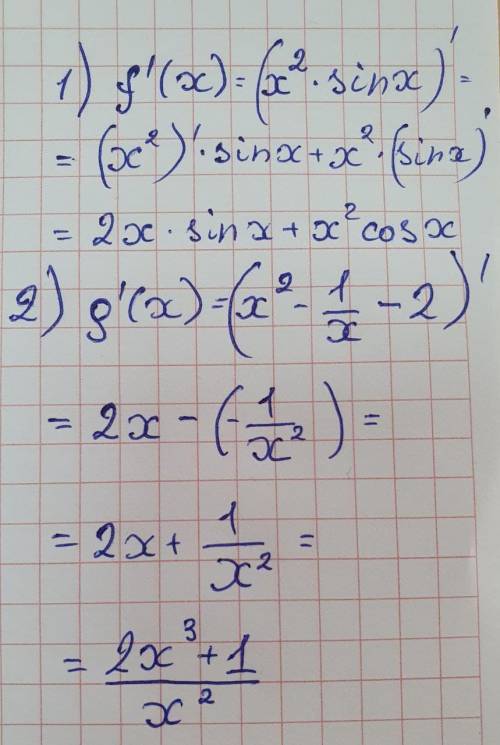 1) f'(x) = (x² · sinx)' =
= (x²)' · sinx + x² · (sinx)'
= 2x · sinx + x² cosx
2) g'(x) = (x² - 1/x - 2)'
= 2x - (-1/x²) =
= 2x + 1/x² =
= (2x³ + 1)/x²